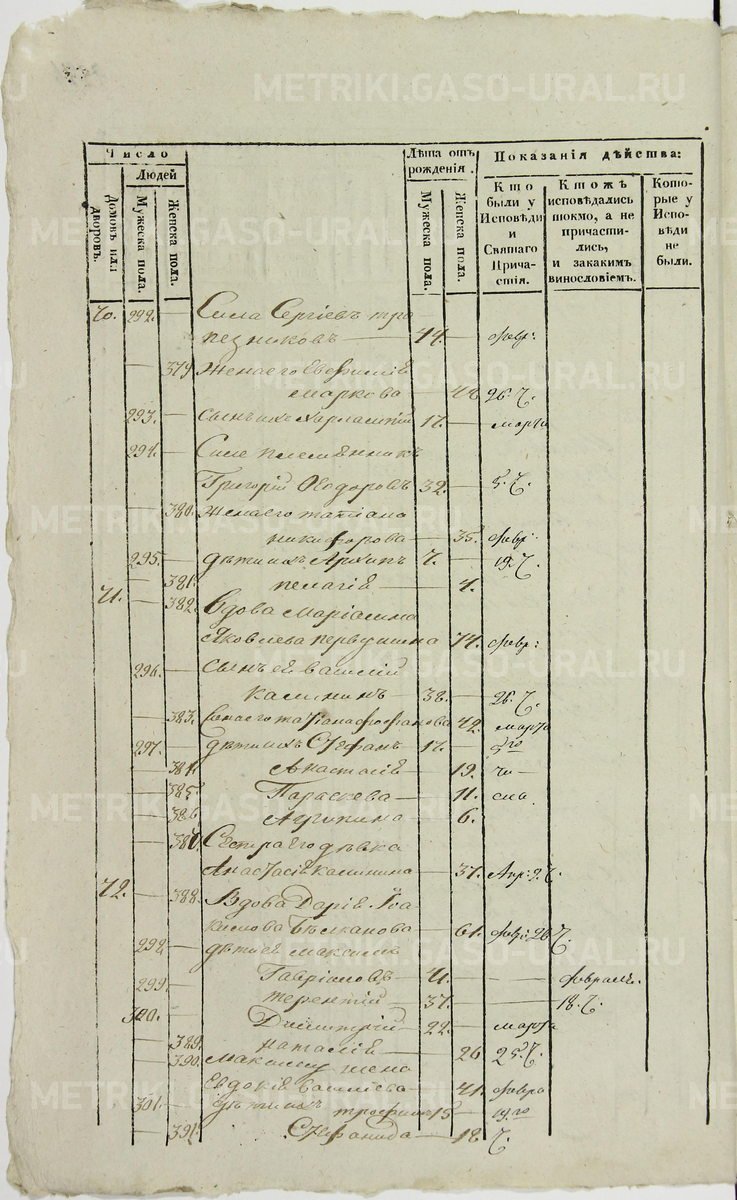 METRIKI.GASO-URAL.RU
Число
Людей
Домовъ или дворовъ.
Мужеска пола.
Женска пола.
Лѣта отъ рожденія.
Мужеска пола.
Женска пола.
Показанія дѣйства:
Кто были у Исповѣди и Святаго Причастія.
Ктожъ исповѣдались токмо, а не причастились, и закакимъ винословіемъ.
Которые у Исповѣди не были.
70. 292. Сила Сергіевъ тра
пезниковъ 44. февр:
379 Жена его Евфимія
Маркова 26. Ч.
293. Сынъ ихъ Харлампій 17. марта
294. Силе племянникъ
Григорій Ѳеодоровъ 32. 5. Ч.
380. Жена его татіана
никифорова 35. февр:
295. дѣти ихъ Архип 7. 19. Ч.
381. пелагія 4.
71. 382. Вдова Марія
Яковлева первушина 74. февр:
296. Сынъ ей василій
калининъ 38. 26. Ч.
383. Жена его татіана 42. марта
297. дѣти ихъ Стефанъ 17. 5го
384. Анастасія 19. чи
385. Параскева 11. сла
386 Агрипина 6.
387. Сестра его дѣвка
Анастасія калинина 37. Апр: 2. Ч.
72. 388. Вдова Дарія Іоа
кимова 61. фев: 26 Ч.
298. дѣти ея Максимъ
Гавріловъ 41. февраля.
299. терентій 37. 18. Ч.
300. Димитрій 22. марта
389. наталія 26 25. Ч.
390. Максиму жена
Евдокія 41. февра
301. дѣти ихъ трофимъ 15 19го
391. Стефанида 18 Ч.